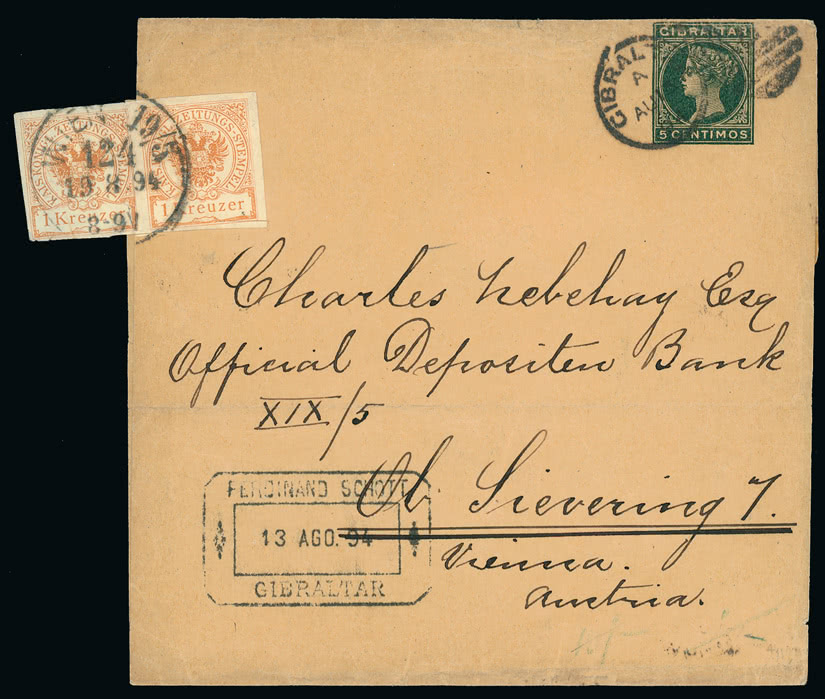 GIBRALTAR
5 CENTIMOS
GIBRALT
A
AU
KAIS. KÖNIGL. ZEITUNGS-STEMPEL
1 Kreuzer
KAIS. KÖNIGL. ZEITUNGS-STEMPEL
1 Kreuzer
19/5
124
19.8.94
8-9V
Charles Nebehay Esq
Official Depositen Bank
XIX/5
Ob. Sievering 7.
Vienna.
Austria.
FERDINAND SCHOTT
13 AGO. 94
GIBRALTAR